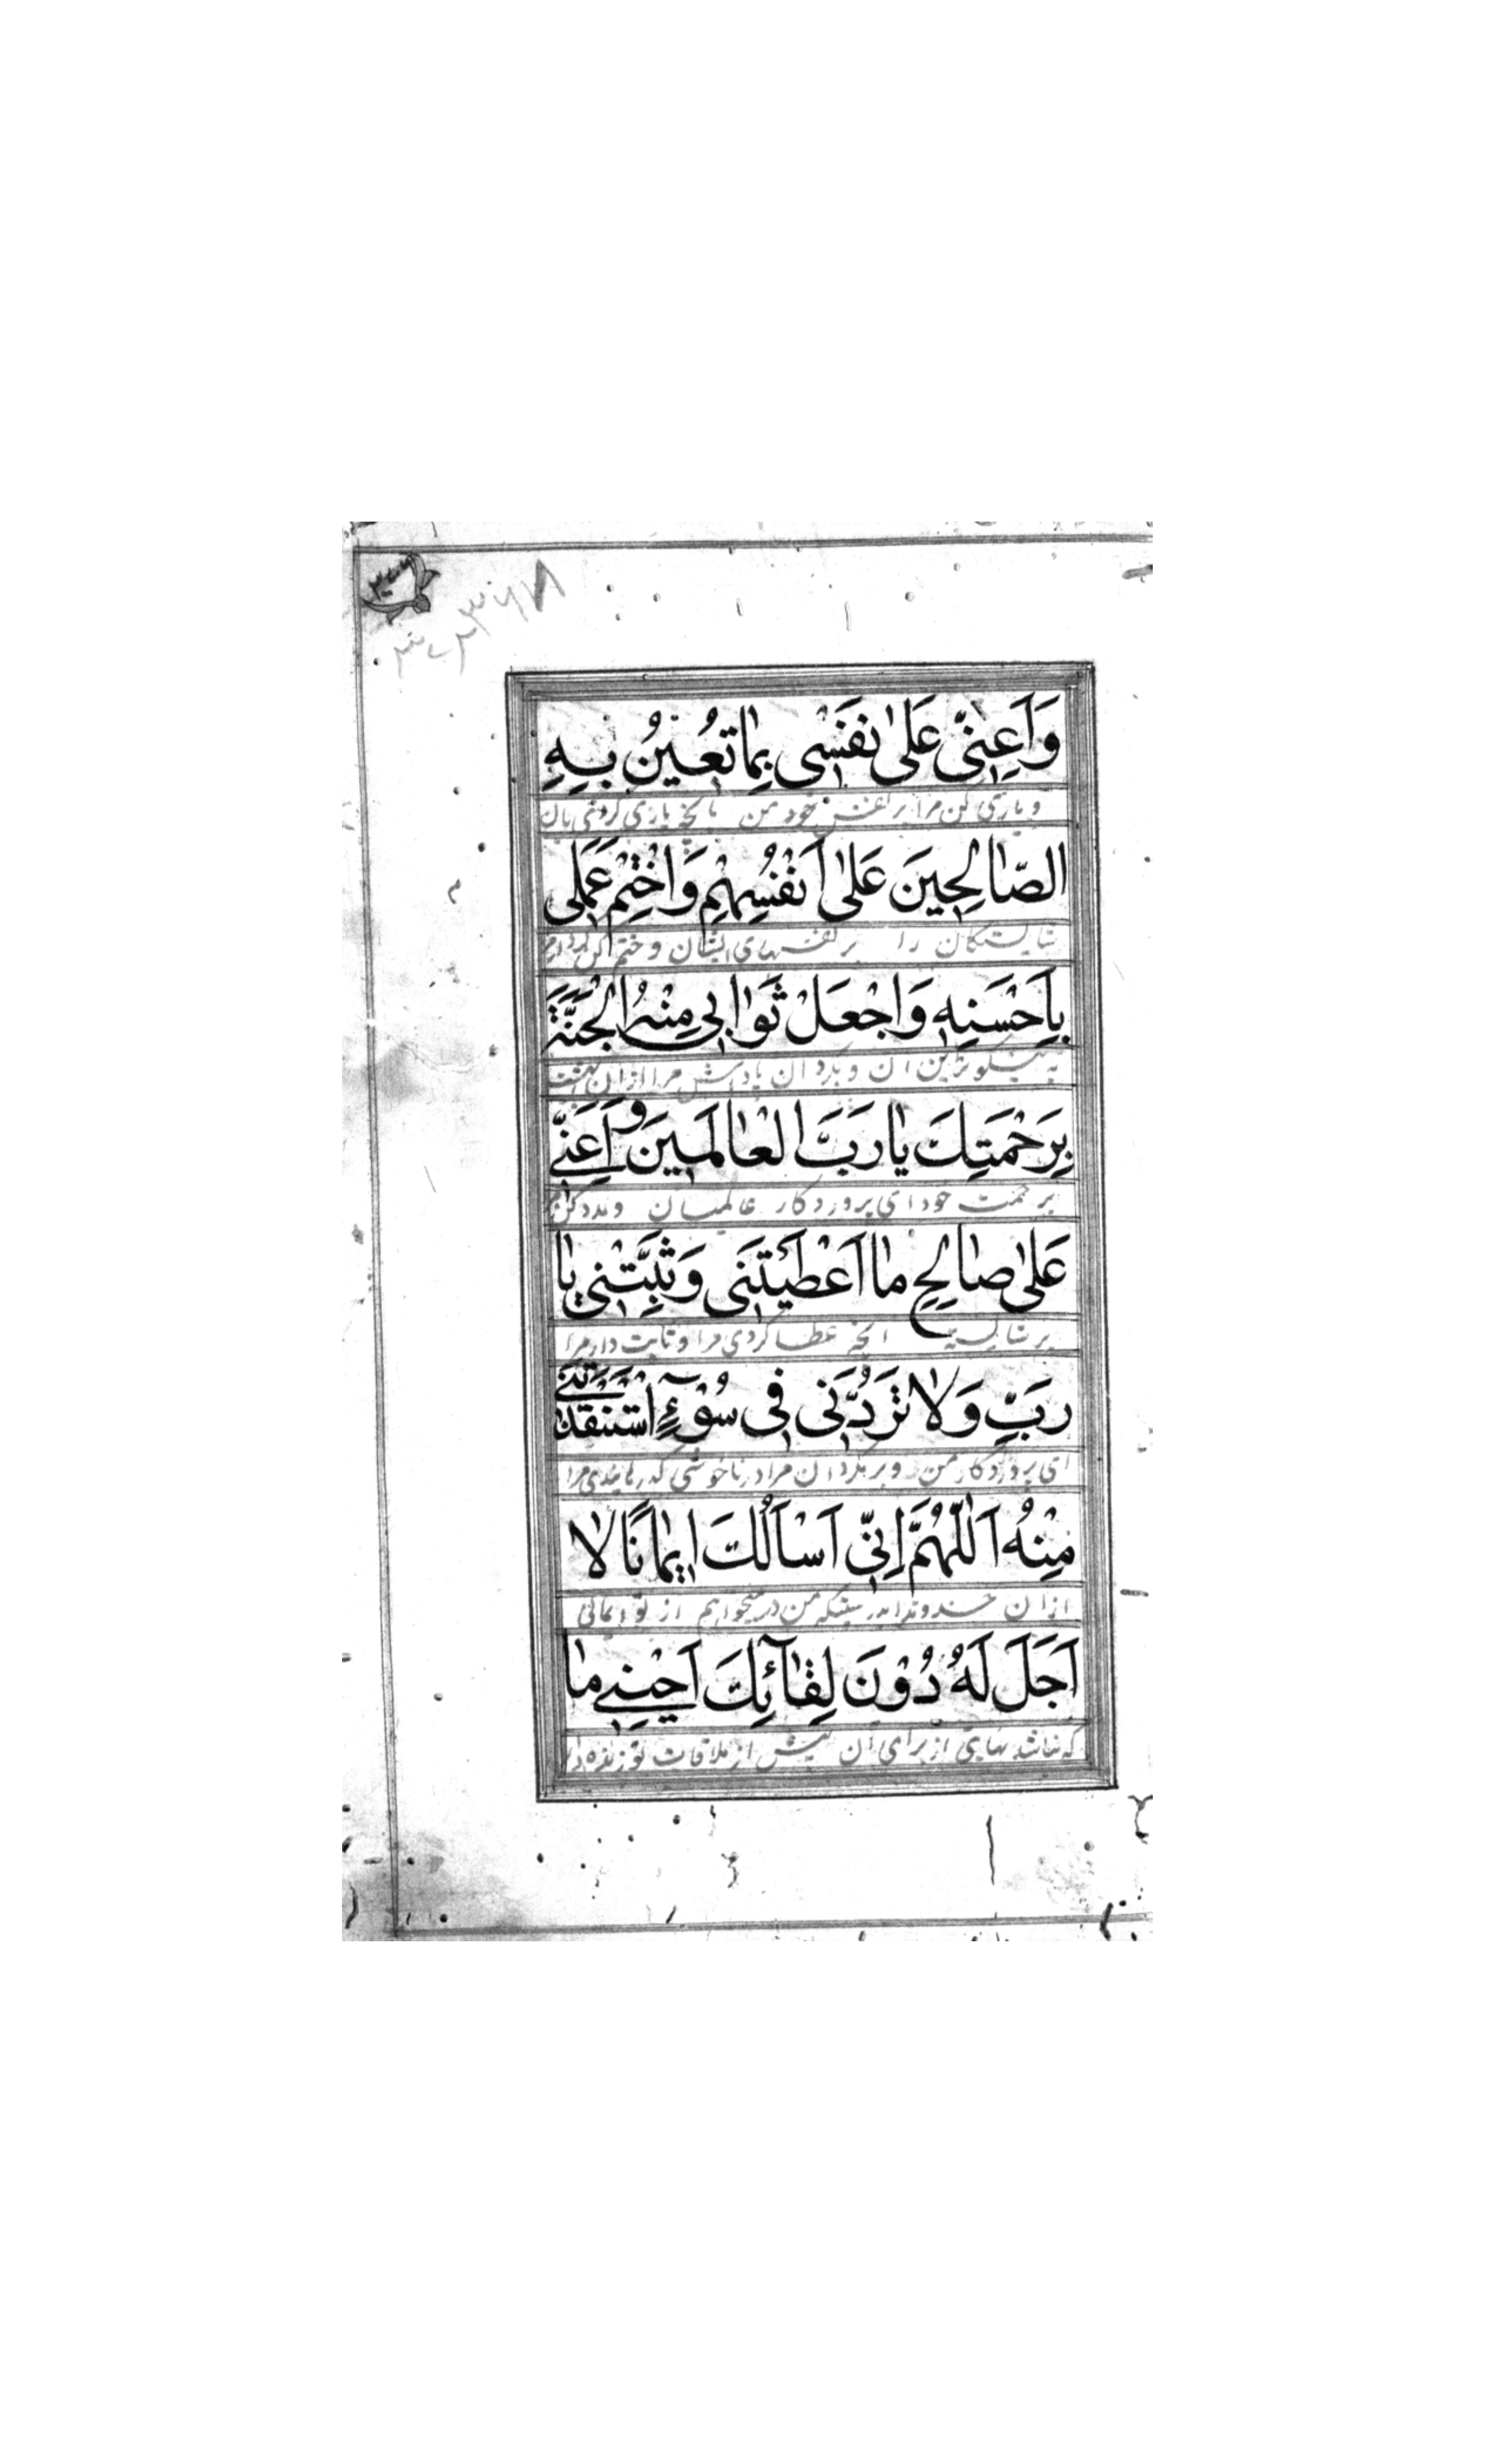 وَاَعِنّى عَلىٰ نَفْسى بِمٰا تُعينُ بِهِ
و یاری کن مرا بر نفس خود من بانچه یاری کردهٔ بان
الصّٰالِحينَ عَلىٰ اَنْفُسِهِمْ وَاخْتِمْ عَمَلى
شایستکان را بر نفسهای ایشان و ختم کن کردار مرا
بِاَحْسَنِهِ وَاجْعَلْ ثَوٰابى مِنْهُ الْجَنَّةَ
به نیکوترین آن و بکردان پاداش مرا از آن بهشت
بِرَحْمَتِكَ يٰا رَبَّ الْعٰالَمينَ وَ اَعِنّى
برحمت خود ای پروردکار عالمیان و مدد کن
عَلىٰ صٰالِحِ مٰا اَعْطَيْتَنى وَثَبِّتْنى يٰا
بر شایسته آنچه عطا کردی مرا و ثابت دار مرا
رَبِّ وَلاٰ تَرُدَّنى فى سُوۤءٍ اسْتَنْقَذْتَنى
ای پروردکار من و بر مکردان مرا در ناخوشی که رهانیدی مرا
مِنْهُ اَللّٰهُمَّ اِنّى اَسْاَلُكَ ايمٰانًا لاٰ
از آن خداوندا بدرستیکه من در میخواهم از تو ایمانی
اَجَلَ لَهُ دُوْنَ لِقٰآئِكَ اَحْيِنى مٰا
که نباشد نهایتی از برای آن پیش از ملاقات تو زنده دار